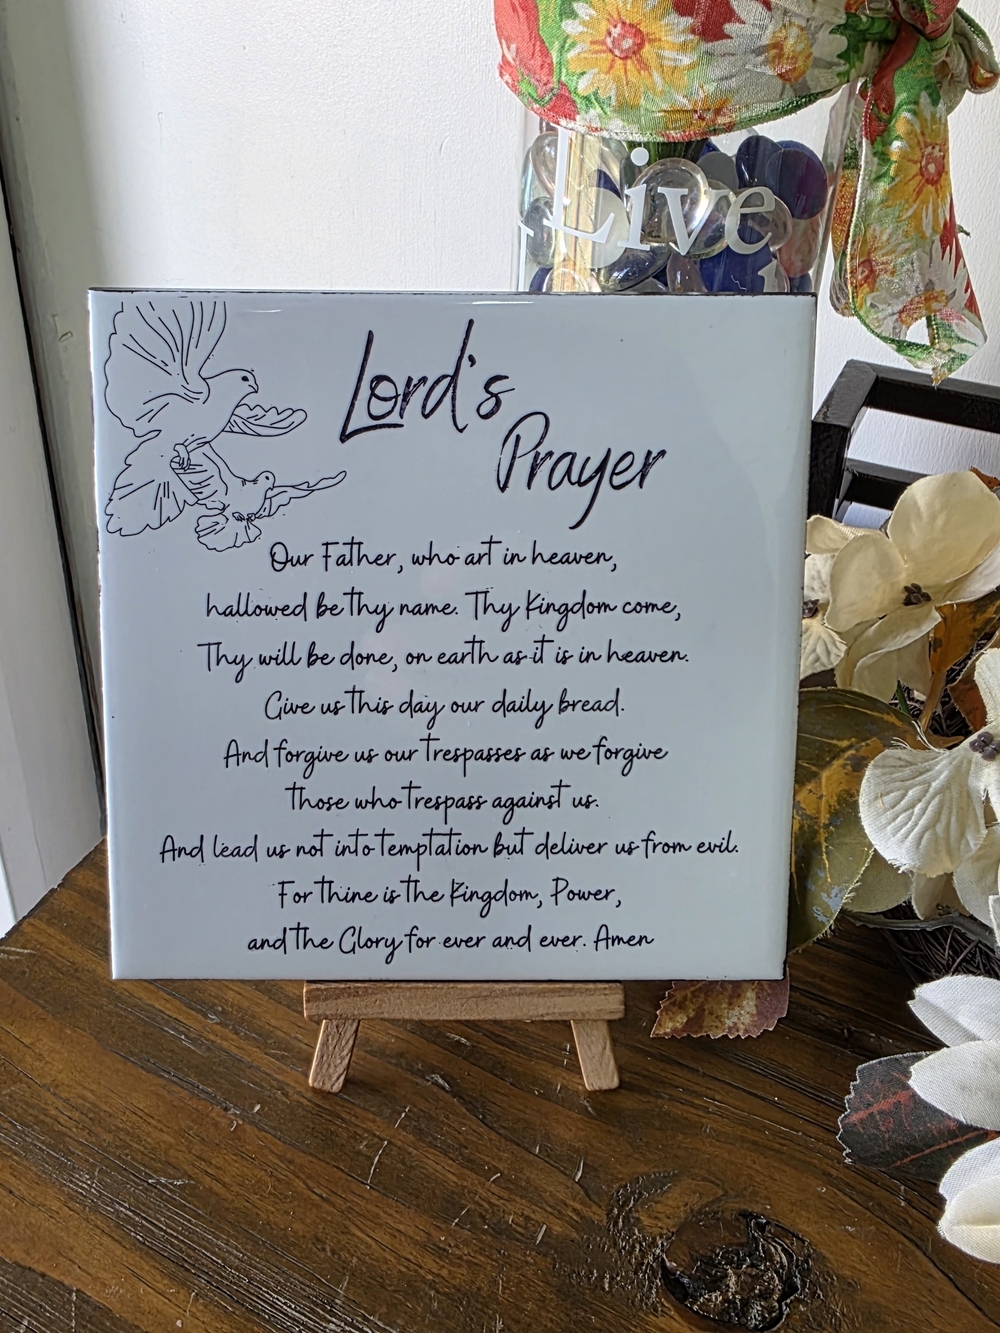 Live
Lord's
Prayer
Our Father, who art in heaven,
hallowed be thy name. Thy Kingdom come,
Thy will be done, on earth as it is in heaven.
Give us this day our daily bread.
And forgive us our trespasses as we forgive
those who trespass against us.
And lead us not into temptation but deliver us from evil.
For thine is the Kingdom, Power,
and the Glory for ever and ever. Amen